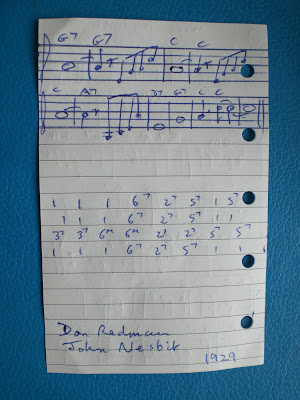 G7 G7 C C
C A7 D7 G7 C C
1 1 1 6⁷ 2⁷ 5⁷ 1 5⁷
1 1 1 6⁷ 2⁷ 5⁷ 1 1
3⁷ 3⁷ 6ᴹ 6ᴹ 2⁷ 2⁷ 5⁷ 5⁷
1 1 1 6⁷ 2⁷ 5⁷ 1 1
Don Redman
John Nesbit
1929